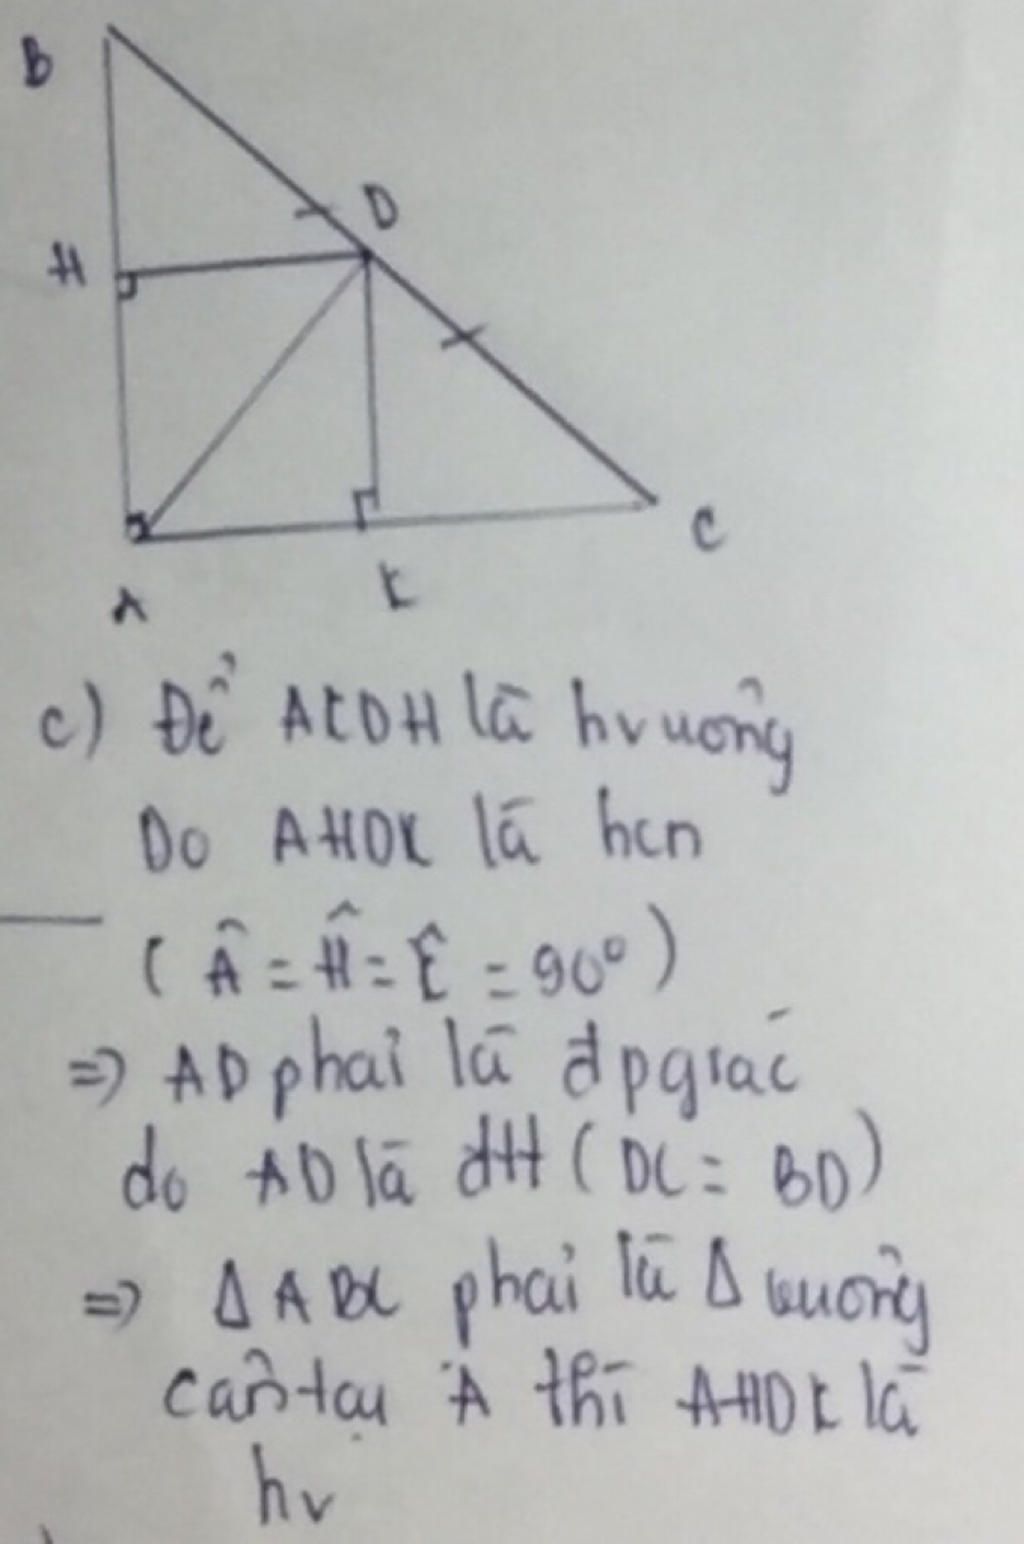 B
D
H
C
A
K
c) Để AKDH là hvuông
Do AHDK là hcn
( Â = Ĥ = K̂ = 90° )
=> AD phải là đpgiác
do AD là đtt ( DC = BD )
=> Δ ABC phải là Δ vuông
cân tại A thì AHDK là
hv